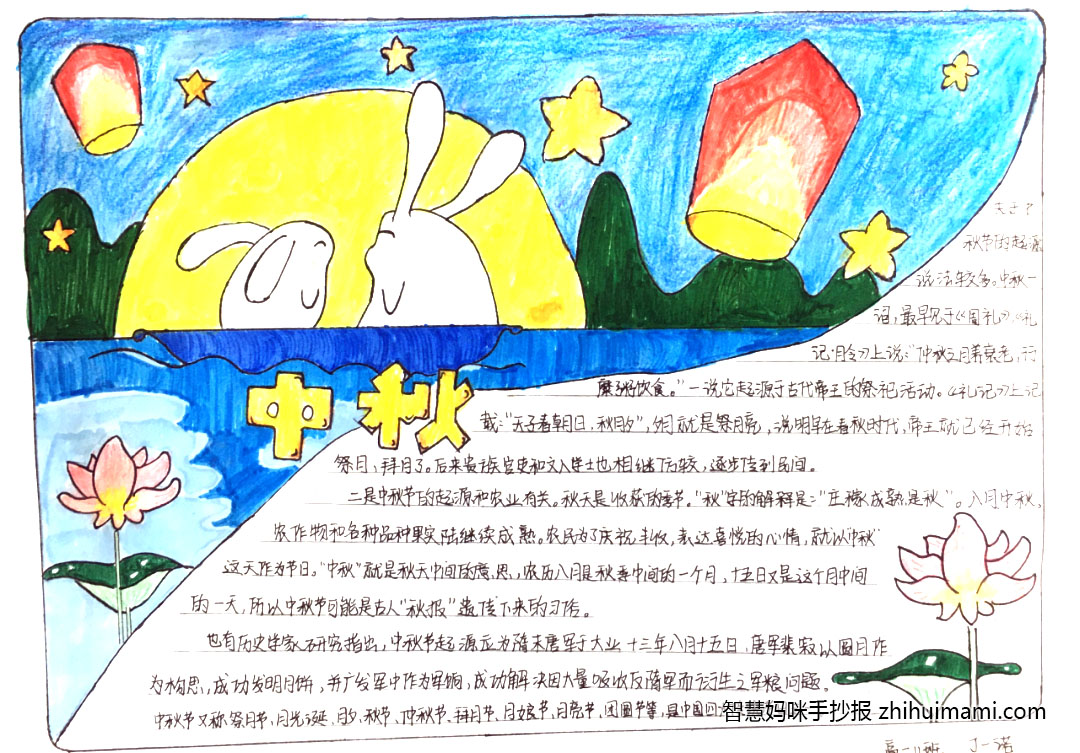 中秋
关于中
秋节的起源
说法较多。中秋一
词，最早见于《周礼》。《礼
记·月令》上说："仲秋之月养衰老，行
糜粥饮食。"一说它起源于古代帝王的祭祀活动。《礼记》上记
载："天子春朝日，秋夕月"，夕月就是祭月亮，说明早在春秋时代，帝王就已经开始
祭月，拜月了。后来贵族官吏和文人学士也相继仿效，逐步传到民间。
二是中秋节的起源和农业有关。秋天是收获的季节。"秋"字的解释是："庄稼成熟是秋"。八月中秋，
农作物和各种品种果实陆继续成熟。农民为了庆祝丰收，表达喜悦的心情，就以"中秋"
这天作为节日。"中秋"就是秋天中间的意思，农历八月是秋季中间的一个月，十五日又是这个月中间
的一天，所以中秋节可能是古人"秋报"遗传下来的习俗。
也有历史学家研究指出，中秋节起源应为隋末唐军于大业十三年八月十五日，唐军裴寂以圆月作
为构思，成功发明月饼，并广发军中作为军饷，成功解决因大量吸收反隋军而衍生之军粮问题。
中秋节又称祭月节、月光诞、月夕、秋节、仲秋节、拜月节、月娘节、月亮节、团圆节等，是中国四
智慧妈咪手抄报 zhihuimami.com
高一11班 丁一诺